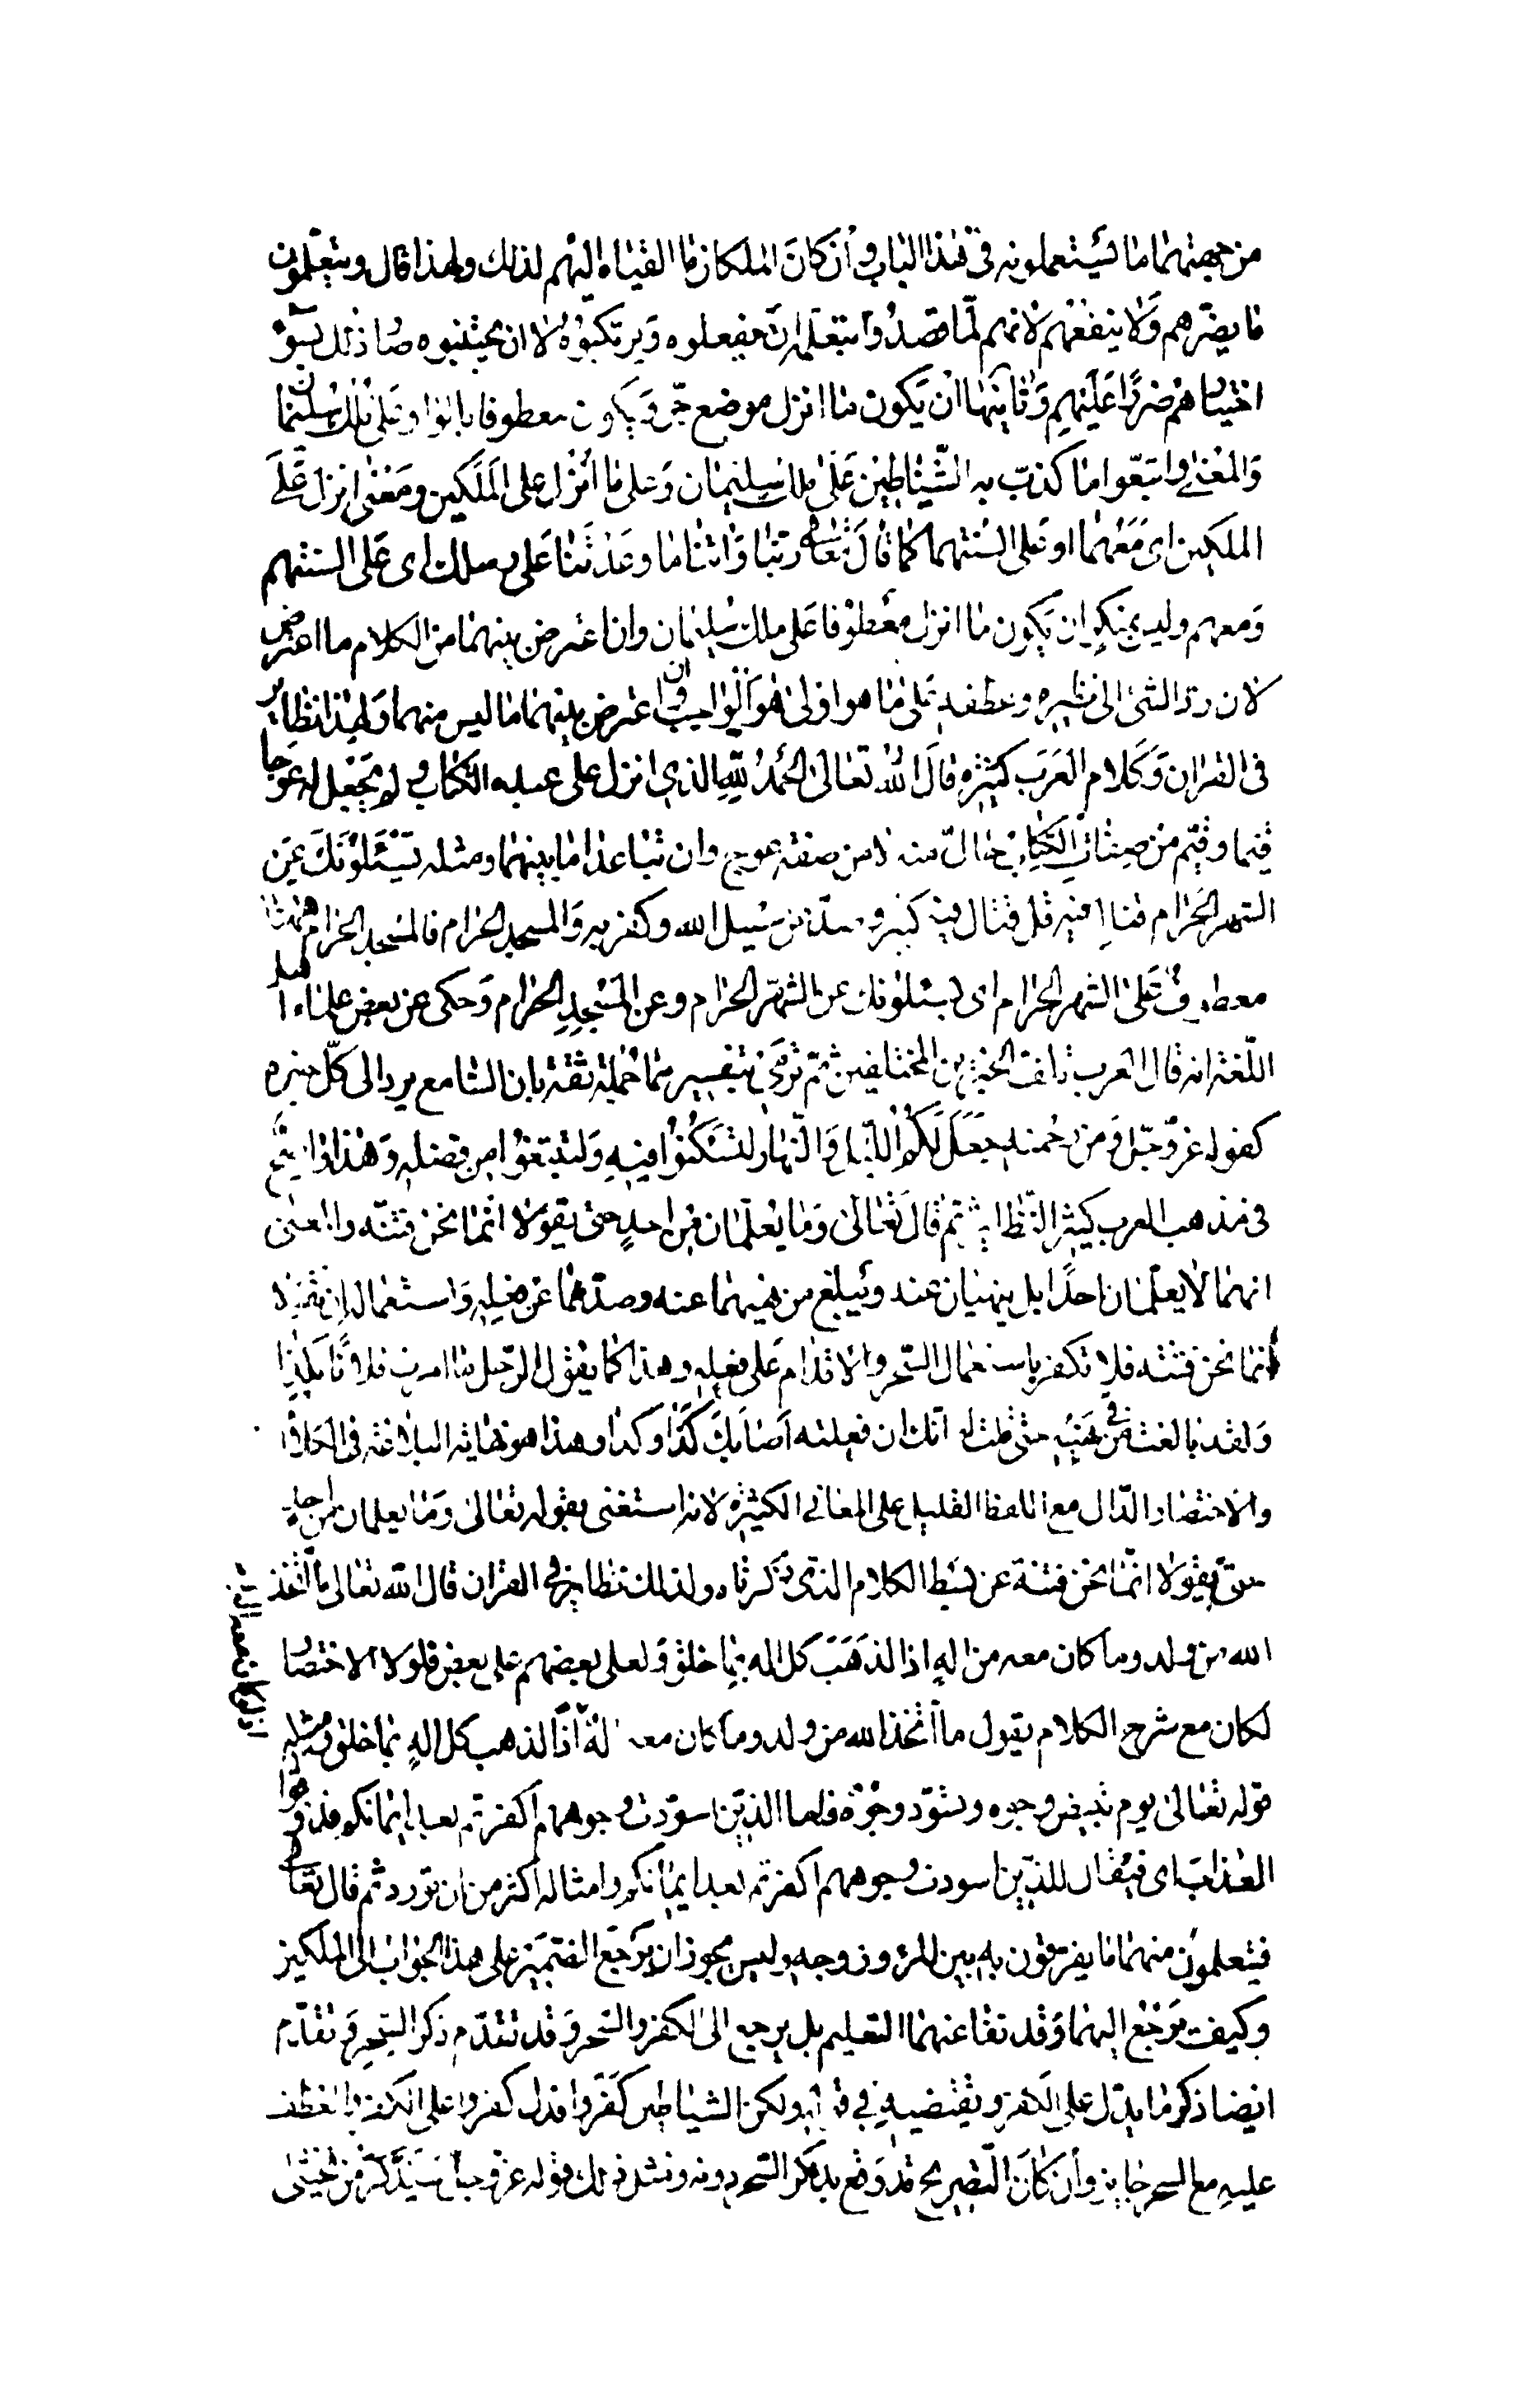 من جهتهما ما يستعملونه في هذا الباب وان كان الملكان ما القياه اليهم لذلك ولهذا قال ويتعلمون
ما يضرهم ولا ينفعهم لانهم لما قصدوا بتعلمه ان يفعلوه ويرتكبوه لا ان يجتنبوه صار ذلك بسوء
اختيارهم ضررا عليهم وثانيها ان يكون ما انزل موضع جر ويكون معطوفا بالواو على ملك سليمان
والمعنى واتبعوا ما كذب به الشياطين على ملك سليمان وعلى ما انزل على الملكين ومعنى انزل على
الملكين اى معهما او على السنتهما كما قال تعالى ربنا وآتنا ما وعدتنا على رسلك اى على السنتهم
ومعهم وليس بمنكر ان يكون ما انزل معطوفا على ملك سليمان وان اعترض بينهما من الكلام ما اعترض
لان رد الشئ الى نظيره وعطفه على ما هو اولى هو الواجب وان اعترض بينهما ما ليس منهما ولهذا نظائر
في القران وكلام العرب كثيرة قال الله تعالى الحمد لله الذي انزل على عبده الكتاب ولم يجعل له عوجا
قيما وقيم من صفات الكتاب حال منه لا من صفة عوج وان تباعد ما بينهما ومثله يسئلونك عن
الشهر الحرام قتال فيه قل قتال فيه كبير وصد عن سبيل الله وكفر به والمسجد الحرام فالمسجد الحرام هاهنا
معطوف على الشهر الحرام اى يسئلونك عن الشهر الحرام وعن المسجد الحرام وحكى عن بعض علماء اهل
اللغة انه قال العرب تلف الخبرين المختلفين ثم ترمى بتفسيرهما جملة ثقة بان السامع يرد الى كل خبره
كقوله عز وجل ومن رحمته جعل لكم الليل والنهار لتسكنوا فيه ولتبتغوا من فضله وهذا واضح
في مذهب العرب كثير النظائر ثم قال تعالى وما يعلمان من احد حتى يقولا انما نحن فتنة والمعنى
انهما لا يعلمان احدا بل ينهيان عنه ويبلغ من نهيهما عنه وصدهما عن فعله واستعماله ان يقولا
انما نحن فتنة فلا تكفر باستعمال السحر والاقدام على فعله وهذا كما يقول الرجل ما امرت فلانا بكذا
ولقد بالغت في نهيه حتى قلت له انك ان فعلته اصابك كذا وكذا وهذا هو نهاية البلاغة في الكلام
والاختصار الدال مع اللفظ القليل على المعاني الكثيرة لانه استغنى بقوله تعالى وما يعلمان من احد
حتى يقولا انما نحن فتنة عن بسط الكلام الذى ذكرناه ولذلك نظائر في القران قال الله تعالى ما اتخذ
الله من ولد وما كان معه من اله اذا لذهب كل اله بما خلق ولعلى بعضهم على بعض فلولا الاختصار
لكان مع شرح الكلام يقول ما اتخذ الله من ولد وما كان معه من اله اذا لذهب كل اله بما خلق ومثله
قوله تعالى يوم تبيض وجوه وتسود وجوه فاما الذين اسودت وجوههم اكفرتم بعد ايمانكم فذوقوا
العذاب اى فيقال للذين اسودت وجوههم اكفرتم بعد ايمانكم وامثاله اكثر من ان تورد ثم قال تعالى
فيتعلمون منهما ما يفرقون به بين المرء وزوجه وليس يجوز ان يرجع الضمير على هذا الجواب الى الملكين
وكيف يرجع اليهما وقد نفا عنهما التعليم بل يرجع الى الكفر والسحر وقد تقدم ذكر السحر وتقدم
ايضا ذكر ما يدل على الكفر ويقتضيه في قوله ولكن الشياطين كفروا فدل كفروا على الكفر والعطف
عليه مع السحر جايز وان كان التصريح قد وقع بذكر السحر دونه ومثل ذلك قوله عز وجل سيذكر من يخشى